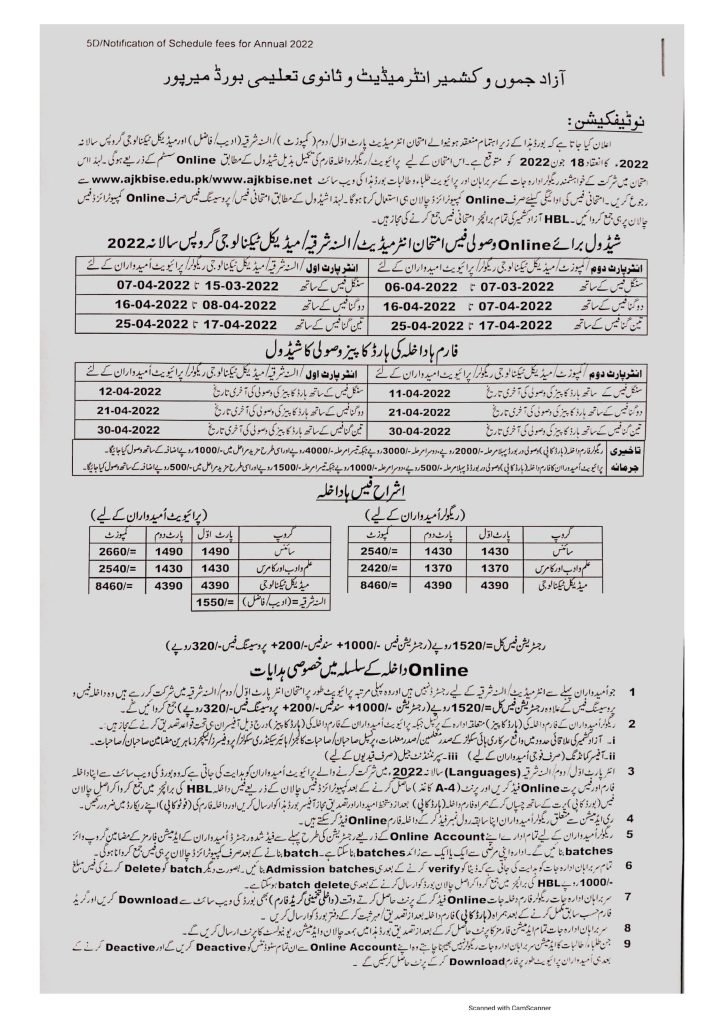 5D/Notification of Schedule fees for Annual 2022
آزاد جموں و کشمیر انٹرمیڈیٹ و ثانوی تعلیمی بورڈ میرپور
نوٹیفکیشن:
اعلان کیا جاتا ہے کہ بورڈ ہذا کے زیر اہتمام منعقد ہونیوالے امتحان انٹرمیڈیٹ پارٹ اوّل/دوم (کمپوزٹ)/السنہ شرقیہ (ادیب/فاضل) اور میڈیکل ٹیکنالوجی گروپس سالانہ
2022ء کا انعقاد 18 جون 2022 کو متوقع ہے۔ اس امتحان کے لیے پرائیویٹ/ریگولر داخلہ فارم کی تکمیل بذیل شیڈول کے مطابق Online سسٹم کے ذریعے ہوگی۔ لہذا اس
امتحان میں شرکت کے خواہشمند ریگولر ادارہ جات کے سربراہان اور پرائیویٹ طلباء و طالبات بورڈ ہذا کی ویب سائٹ www.ajkbise.edu.pk/www.ajkbise.net سے
رجوع کریں۔ امتحانی فیس کی ادائیگی کیلئے صرف Online کمپیوٹرائزڈ چالان ہی استعمال کرنا ہوگا۔ لہذا شیڈول کے مطابق امتحانی فیس/پروسیسنگ فیس صرف Online کمپیوٹرائزڈ فیس
چالان پر ہی جمع کروائیں۔ HBL آزاد کشمیر کی تمام برانچز امتحانی فیس جمع کرنے کی مجاز ہیں۔
شیڈول برائے Online وصولی فیس امتحان انٹرمیڈیٹ/السنہ شرقیہ/میڈیکل ٹیکنالوجی گروپس سالانہ 2022
انٹر پارٹ دوم/کمپوزٹ/میڈیکل ٹیکنالوجی ریگولر/پرائیویٹ امیدواران کے لئے | انٹر پارٹ اول/السنہ شرقیہ/میڈیکل ٹیکنالوجی ریگولر/پرائیویٹ اُمیدواران کے لئے
سنگل فیس کے ساتھ 07-03-2022 تا 06-04-2022 | سنگل فیس کے ساتھ 15-03-2022 تا 07-04-2022
دوگنا فیس کے ساتھ 07-04-2022 تا 16-04-2022 | دوگنا فیس کے ساتھ 08-04-2022 تا 16-04-2022
تین گنا فیس کے ساتھ 17-04-2022 تا 25-04-2022 | تین گنا فیس کے ساتھ 17-04-2022 تا 25-04-2022
فارم ہا داخلہ کی ہارڈ کاپیز وصولی کا شیڈول
انٹر پارٹ دوم/کمپوزٹ/میڈیکل ٹیکنالوجی ریگولر/پرائیویٹ امیدواران کے لئے | انٹر پارٹ اول/السنہ شرقیہ/میڈیکل ٹیکنالوجی ریگولر/پرائیویٹ اُمیدواران کے لئے
سنگل فیس کے ساتھ ہارڈ کاپیز کی وصولی کی آخری تاریخ 11-04-2022 | سنگل فیس کے ساتھ ہارڈ کاپیز کی وصولی کی آخری تاریخ 12-04-2022
دوگنا فیس کے ساتھ ہارڈ کاپیز کی وصولی کی آخری تاریخ 21-04-2022 | دوگنا فیس کے ساتھ ہارڈ کاپیز کی وصولی کی آخری تاریخ 21-04-2022
تین گنا فیس کے ساتھ ہارڈ کاپیز کی وصولی کی آخری تاریخ 30-04-2022 | تین گنا فیس کے ساتھ ہارڈ کاپیز کی وصولی کی آخری تاریخ 30-04-2022
تاخیری ریگولر فارم داخلہ (ہارڈ کاپی) وصولی و بورڈ پہلا مرحلہ -/2000 روپے، دوسرا مرحلہ -/3000 روپے جبکہ تیسرا مرحلہ -/4000 روپے اور اسی طرح مزید مراحل میں -/1000 روپے اضافہ کے ساتھ وصول کیا جائیگا۔
جرمانہ پرائیویٹ اُمیدواران کا فارم داخلہ (ہارڈ کاپی) وصولی و بورڈ پہلا مرحلہ -/500 روپے، دوسرا مرحلہ -/1000 روپے جبکہ تیسرا مرحلہ -/1500 روپے اور اسی طرح مزید مراحل میں -/500 روپے اضافہ کے ساتھ وصول کیا جائیگا۔
اشراح فیس ہا داخلہ
(ریگولر اُمیدواران کے لیے) (پرائیویٹ اُمیدواران کے لیے)
گروپ پارٹ اوّل پارٹ دوم کمپوزٹ | گروپ پارٹ اوّل پارٹ دوم کمپوزٹ
سائنس 1430 1430 2540/= | سائنس 1490 1490 2660/=
علم و ادب اور کامرس 1370 1370 2420/= | علم و ادب اور کامرس 1430 1430 2540/=
میڈیکل ٹیکنالوجی 4390 4390 8460/= | میڈیکل ٹیکنالوجی 4390 4390 8460/=
السنہ شرقیہ = (ادیب/فاضل) 1550/=
رجسٹریشن فیس کل =/1520 روپے (رجسٹریشن فیس -/1000+ سند فیس -/200+ پروسیسنگ فیس -/320 روپے)
Online داخلہ کے سلسلہ میں خصوصی ہدایات
1 جو اُمیدواران پہلے سے انٹرمیڈیٹ/السنہ شرقیہ کے لیے رجسٹرڈ نہیں ہیں اور وہ پہلی مرتبہ پرائیویٹ طور پر امتحان انٹر پارٹ اوّل/دوم/السنہ شرقیہ میں شرکت کر رہے ہیں وہ داخلہ فیس و
پروسیسنگ فیس کے علاوہ رجسٹریشن فیس کل =/1520 روپے (رجسٹریشن -/1000+ سند فیس -/200+ پروسیسنگ فیس -/320 روپے) جمع کروائیں گے۔
2 ریگولر اُمیدواران کے فارم داخلہ کی (ہارڈ کاپیز) متعلقہ ادارہ کے پرنسپل جبکہ پرائیویٹ اُمیدواران کے فارم داخلہ کی (ہارڈ کاپیز) درج ذیل آفیسران ہی تحت قواعد تصدیق کرنے کے مجاز ہیں:۔
i۔ آزاد کشمیر کی علاقائی حدود میں واقع سرکاری ہائی سکولز کے صدر معلمین/صدر معلمات، پرنسپل صاحبان/صاحبات کالجز/ہائیر سیکنڈری سکولز/پروفیسرز/لیکچرز/ماہرین مضامین صاحبان/صاحبات۔
ii۔ آفیسر کمانڈنگ (صرف فوجی اُمیدواران کے لیے) iii۔ سپرنٹنڈنٹ جیل (صرف قیدیوں کے لیے)
3 انٹر پارٹ اوّل/دوم/السنہ شرقیہ (Languages) سالانہ 2022ء میں شرکت کرنے والے پرائیویٹ اُمیدواران کو ہدایت کی جاتی ہے کہ وہ بورڈ کی ویب سائٹ سے اپنا داخلہ
فارم اور فیس پرت Online فیڈ کریں اور پرنٹ (A-4 کاغذ) حاصل کرنے کے بعد کمپیوٹرائزڈ فیس چالان کے ذریعے فیس داخلہ HBL کی برانچز میں جمع کروا کر اصل چالان
فیس (بورڈ کاپی) پرت کے ساتھ چسپاں کر کے ہمراہ فارم داخلہ (ہارڈ کاپی) بعد از دستخط امیدوار اور تصدیق مجاز آفیسر بورڈ ہذا کو ارسال کریں اور داخلہ فارم کی (فوٹو کاپی) اپنے ریکارڈ میں ضرور رکھیں۔
4 ری ایڈمیشن سے متعلق ریگولر اُمیدواران اپنا سابقہ رول نمبر فیڈ کر کے داخلہ فارم Online فیڈ کر سکتے ہیں۔
5 ریگولر اُمیدواران کے لیے تمام ادارے اپنے Online Account کے ذریعے رجسٹریشن کی طرح پہلے سے فیڈ شدہ رجسٹرڈ اُمیدواران کے ایڈمیشن فارمز کے مضامین گروپ وائز
batches بنائیں گے۔ ادارہ اپنی مرضی سے ایک یا ایک سے زائد batches بنا سکتا ہے۔ batch بنانے کے بعد صرف کمپیوٹرائزڈ چالان پر ہی فیس جمع کروانا ہوگی۔
6 تمام سربراہان ادارہ جات کو ہدایت کی جاتی ہے کہ ڈیٹا کو verify کرنے کے بعد ہی Admission batches بنائیں۔ بصورت دیگر batch کو Delete کرنے کی فیس مبلغ
-/1000 روپے HBL کی برانچز میں جمع کروا کر اصل چالان بورڈ کو ارسال کرنے کے بعد ہی batch delete ہو سکتا ہے۔
7 سربراہان ادارہ جات ریگولر فارم داخلہ جات Online فیڈ کر کے پرنٹ حاصل کرتے وقت (داخلی تخمینی گریڈ فارم) بھی بورڈ کی ویب سائٹ سے Download کریں اور گریڈ
فارم حسب سابق مکمل کرنے کے بعد ہمراہ (ہارڈ کاپی) فارم داخلہ بعد از تصدیق/مہر ثبت کر کے دفتر بورڈ کو ارسال کریں۔
8 سربراہان ادارہ جات تمام ایڈمیشن فارمز کا پرنٹ حاصل کرنے کے بعد از تصدیق بورڈ ہذا میں بمعہ چالان و ایڈمیشن ریونیو لسٹ کا پرنٹ ارسال کریں گے۔
9 جن طلباء/طالبات کا ایڈمیشن سربراہان ادارہ جات ریگولر نہیں بھیجنا چاہتے وہ اپنے Online Account سے ان تمام سٹوڈنٹس کو Deactive کریں گے اور Deactive کرنے کے
بعد ہی اُمیدواران پرائیویٹ طور پر فارم Download کر کے پرنٹ حاصل کر سکیں گے۔
Scanned with CamScanner